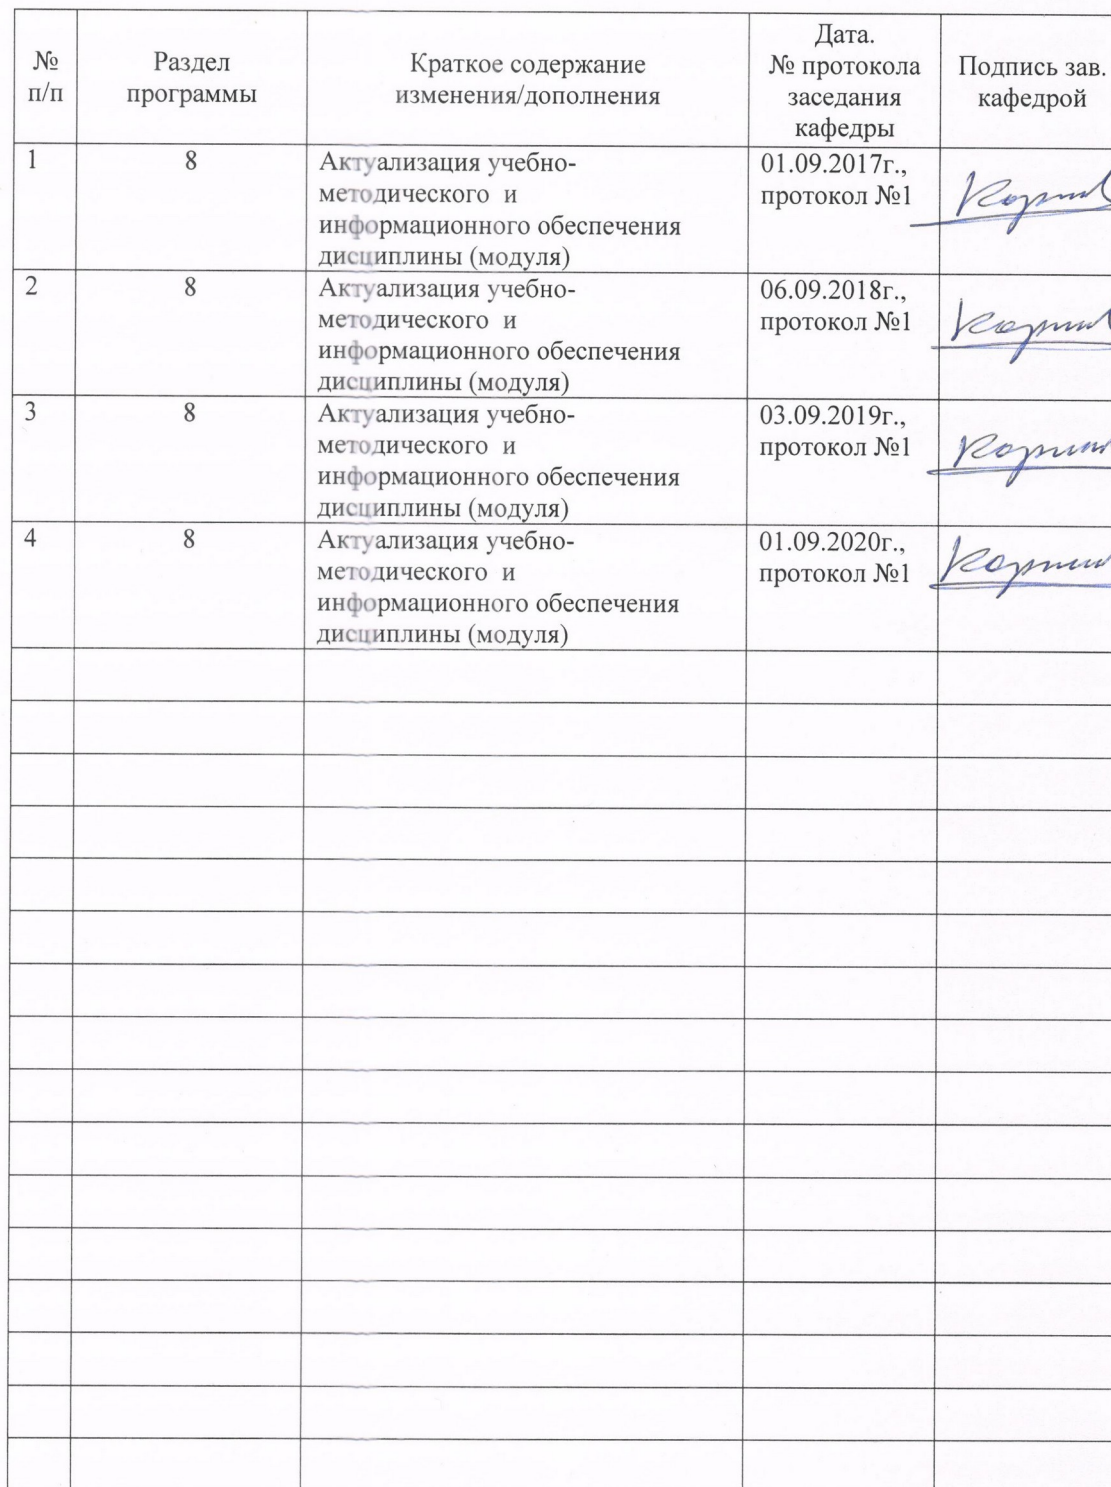 № п/п
Раздел
программы
Краткое содержание
изменения/дополнения
Дата.
№ протокола
заседания
кафедры
Подпись зав.
кафедрой
1
8
Актуализация учебно-
методического и
информационного обеспечения
дисциплины (модуля)
01.09.2017г.,
протокол №1
2
8
Актуализация учебно-
методического и
информационного обеспечения
дисциплины (модуля)
06.09.2018г.,
протокол №1
3
8
Актуализация учебно-
методического и
информационного обеспечения
дисциплины (модуля)
03.09.2019г.,
протокол №1
4
8
Актуализация учебно-
методического и
информационного обеспечения
дисциплины (модуля)
01.09.2020г.,
протокол №1